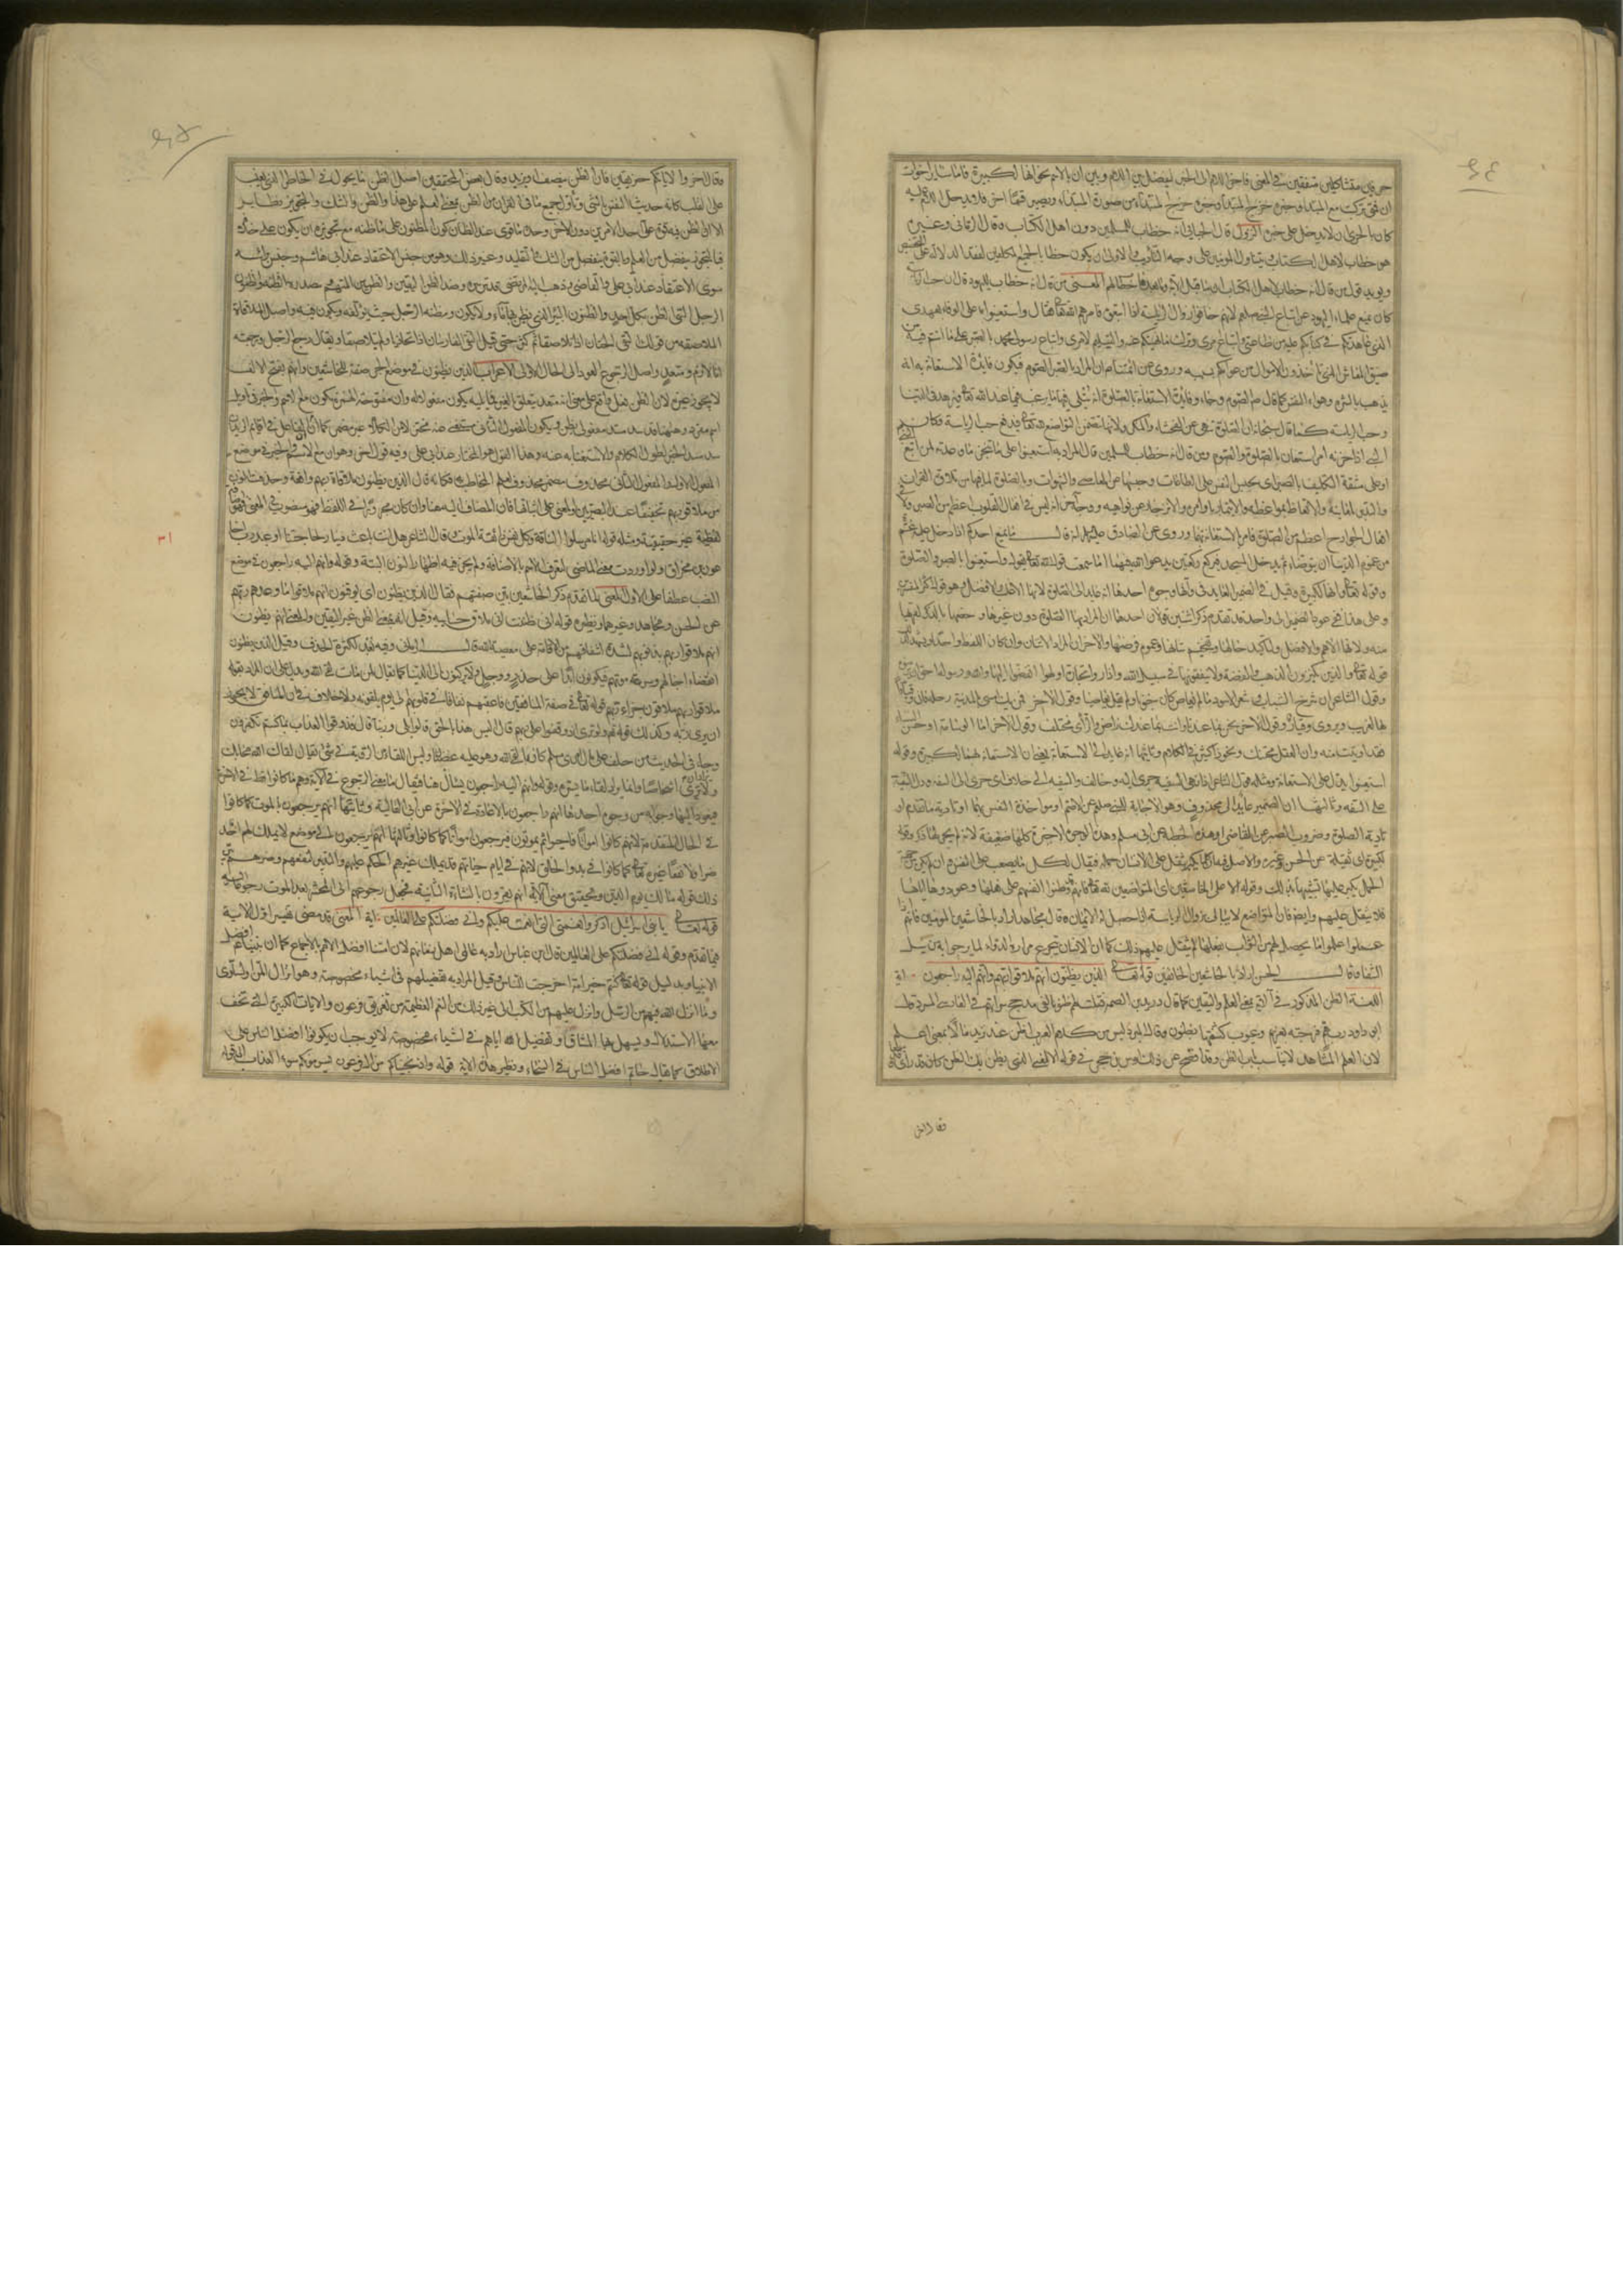 حرفين متشاكلين متفقين في المعنى فاخر اللام الى الخبر ليفصل بين اللام وبين ان بالاسم نحو انها لكبيرة فاما سائر اخوات
ان فمتى تركب مع المبتدا وخبره خرج المبتدا وخبره من صورة المبتداء ويصير قسما اخر فلا يدخل اللام عليه
كان الجزي ان لا يدخل على خبره النزول قال الجبائي انه خطاب للمسلمين دون اهل الكتاب وقال الرماني وغيره
هو خطاب لاهل الكتاب ويتناول المؤمنين على وجه التاديب والاولى ان يكون خطابا لجميع المكلفين لفقد الدلالة على التخصيص
ويويد قول من قال انه خطاب لاهل الكتاب ان ما قبل الاية وما بعدها خطاب لهم المعنى من قال انه خطاب لليهود قال ان حب الرياسة
كان يمنع علماء اليهود عن اتباع النبي صلعم لانهم خافوا زوال الرياسة اذا اتبعوه فامرهم الله تعالى فقال واستعينوا على الوفاء بعهدي
الذي عاهدتكم في كتابكم عليه من طاعتي واتباع امري وترك ما نهيتكم عنه والتسليم لامري واتباع رسولي محمد بالصبر على ما انتم فيه من
ضيق المعاش الذي تاخذون الاموال من عوامكم بسببه وروي عن ائمتنا م ان المراد بالصبر الصوم فيكون فايدة الاستعانة به انه
يذهب بالشره وهواء النفس كما قال صلعم الصوم وجاء وفايدة الاستعانة بالصلوة انه يتلى فيها ما يرغب فيما عند الله تعالى ويزهد في الدنيا
وحب الرياسة كما قال سبحانه ان الصلوة تنهى عن الفحشاء والمنكر ولانها تتضمن التواضع لله تعالى فيدفع حب الرياسة وكان النبي
اذا حزنه امر استعان بالصلوة والصوم ومن قال انه خطاب للمسلمين قال المراد به استعينوا على تنجز ما وعدته لمن اتبع النبي
او على مشقة التكليف بالصبر اي بحبس النفس على الطاعات وحبسها عن المعاصي والشهوات وبالصلوة لما فيها من تلاوة القران
والتدبر لمعانيه والاتعاظ بمواعظه والايتمار باوامره والانزجار عن نواهيه ووجه اخر انه ليس في افعال القلوب اعظم من الصبر ولا في
افعال الجوارح اعظم من الصلوة فامر بالاستعانة بهما وروي عن الصادق عليه السلم انه قال ما يمنع احدكم اذا دخل عليه غم
من غموم الدنيا ان يتوضاء ثم يدخل المسجد فيركع ركعتين يدعو الله فيهما اما سمعت قول الله تعالى يقول واستعينوا بالصبر والصلوة
وقوله تعالى وانها لكبيرة وقيل في الضمير العايد في وانها وجوه احدها انه عايد الى الصلوة لانها الاغلب والافضل وهو قول اكثر المفسرين
وعلى هذا ففي عود الضمير الى واحد وقد تقدم ذكر اثنين قولان احدهما ان المراد بها الصلوة دون غيرها وخصها بالذكر لقربها
منه ولانها الاهم والافضل ولتاكيد حالها وتفخيم شانها وعموم فرضها والاخر ان المراد الاثنان وان كان اللفظ واحدا ويشهد لذلك
قوله تعالى والذين يكنزون الذهب والفضة ولا ينفقونها في سبيل الله واذا راوا تجارة او لهوا انفضوا اليها والله ورسوله احق ان يرضوه
وقول الشاعر ان شرخ الشباب والشعر الاسود ما لم يعاص كان جنونا ولم يقل يعاصيا وقول الاخر فمن يك امسى بالمدينة رحله فاني وقيار
بها لغريب ويروى وقيارا وقول الاخر نحن بما عندنا وانت بما عندك راض والراي مختلف وقول الاخر اما الوسامة او حسن النساء
فقد اوتيت منه وان العقل محتنك ونحو ذا كثير في الكلام وثانيها انه عايد الى الاستعانة يعني ان الاستعانة بهما لكبيرة وقوله
استعينوا يدل على الاستعانة ومثله قول الشاعر اذا نهي السفيه جرى اليه وخالف والسفيه الى خلاف اي جرى الى السفه ودل السفيه
على السفه وثالثها ان الضمير عايد الى محذوف وهو الاجابة للنبي صلعم عن الاصم او مواخذة النفس بهما او تادية ما تقدم او
تادية الصلوة وضروب الصبر عن القاضي او هذه الخطة عن ابي مسلم وهذه الوجوه الاخيرة كلها ضعيفة لانه لم يجر لها ذكر وقوله
لكبيرة اي ثقيلة عن الحسن وغيره والاصل فيه ان كل ما يكبر يثقل على الانسان حمله فيقال لكل ما يصعب على النفس وان لم يكن من جهة
الحمل يكبر عليها تشبيها بذلك وقوله الا على الخاشعين اي المتواضعين لله تعالى فانهم قد وطنوا انفسهم على فعلها وعودوها اياها
فلا يثقل عليهم وايضا فان المتواضع لا يبالي بزوال الرياسة اذا حصل له الايمان وقال مجاهد اراد بالخاشعين المؤمنين فانهم اذا
عملوا علموا ما يحصل لهم من الثواب بفعلها لم يثقل عليهم ذلك كما ان الانسان يتجرع مرارة الدواء لما يرجوا به من نيل
الشفاء وقال الحسن اراد بالخاشعين الخائفين قوله تعالى الذين يظنون انهم ملاقوا ربهم وانهم اليه راجعون اية
اللغة الظن المذكور في الاية بمعنى العلم واليقين كما قال دريد بن الصمة فقلت لهم ظنوا بالفي مدجج سراتهم في الفارسي المسرد وقال
ابو داود رب هم فرجته بعزيم وغيوب كشفتها بظنون وقال المبرد ليس من كلام العرب اظن عند زيد مالا بمعنى اعلم
لان العلم المشاهد لا يناسب باب الظن وقد افصح عن ذلك اوس بن حجر في قوله الالمعي الذي يظن بك الظن كان قد راى وقد سمعا
وقال اخر
وقال اخر والا ياتكم خبر يقين فان الظن ينقص او يزيد وقال بعض المحققين اصل الظن ما يجول في الخاطر الذي يغلب
على القلب كانه حديث النفس بالشيء وتاول جميع ما في القران من الظن بمعنى العلم على هذا والظن والشك والتجويز نظاير
الا ان الظن فيه قوة على احد الامرين دون الاخر وحده ما قوي عند الظان كون المظنون على ما ظنه مع تجويزه ان يكون على خلافه
فبالتجويز ينفصل من العلم وبالقوة ينفصل من الشك والتقليد وغير ذلك وهو من جنس الاعتقاد عند ابي هاشم وجنس براسه
سوى الاعتقاد عند ابي علي والقاضي وذهب اليه المرتضى قدس سره وضد الظن اليقين والظنين المتهم ومصدره الظنة والظنون
الرجل السيئ الظن بكل احد والظنون البئر الذي يظن فيها ماء ولا يكون ومظنة الرجل حيث يؤلفه ويكون فيه واصل الملاقاة
الملاصقة من قولك التقى الحدان اذا تلاصقا ثم كثر حتى قيل التقى الفارسان اذا تحاذيا ولم يتلاصقا ويقال رجع الرجل ورجعته
انا لازم ومتعد واصل الرجوع العود الى الحال الاولى الاعراب الذين يظنون في موضع الجر صفة للخاشعين وانهم بفتح الالف
لا يجوز غيره لان الظن فعل واقع على معنى انه متعد يتعلق بالغير فما يليه يكون مفعولا له وان مفتوحة الهمزة يكون مع الاسم والخبر في تاويل
اسم مفرد وههنا قد سد مسد مفعولي يظن ويكون المفعول الثاني مستغنى عنه مختزلا من الكلام غير مضمر كما ان الفاعل في اقائم الزيدان
سد مسد الخبر لطول الكلام والاستغناء به عنه وهذا القول هو المختار عند ابي علي وفيه قول اخر وهو ان مع الاسم والخبر في موضع
المفعول الاول والمفعول الثاني محذوف مضمر محذوف لعلم المخاطب به فكانه قال الذين يظنون ملاقاة ربهم واقعة وحذفت النون
من ملاقوا ربهم تخفيفا عند البصريين والمعنى على اثباتها فان المضاف اليه هنا وان كان مجرورا في اللفظ فهو منصوب في المعنى فهي اضافة
لفظية غير حقيقية ومثله قوله انا مرسلوا الناقة وكل نفس ذائقة الموت وقال الشاعر هل انت باعث دينار لحاجتنا او عبد رب اخا
عون بن مخراق ولو اوردت معنى الماضي لتعرف الاسم بالاضافة ولم يجز فيه اظهار النون البتة وقوله وانهم اليه راجعون في موضع
النصب عطفا على الاول المعنى لما تقدم ذكر الخاشعين بين صفتهم فقال الذين يظنون اي يوقنون انهم ملاقوا ما وعدهم ربهم
عن الحسن ومجاهد وغيرهما ونظيره قوله اني ظننت اني ملاق حسابيه وقيل انه بمعنى الظن غير اليقين والمعنى انهم يظنون
انهم ملاقوا ربهم بذنوبهم لشدة اشفاقهم من الاقامة على معصية الله قال الرماني وفيه بعد لكثرة الحذف وقيل الذين يظنون
انقضاء اجالهم وسرعة موتهم فيكونون ابدا على حذر ووجل ولا يركنون الى الدنيا كما يقال لمن مات لقي الله ويدل على ان المراد بقوله
ملاقوا ربهم ملاقون جزاء ربهم قوله تعالى في صفة المنافقين فاعقبهم نفاقا في قلوبهم الى يوم يلقونه ولا خلاف في ان المنافق لا يجوز
ان يرى ربه وكذلك قوله تعالى ولو ترى اذ وقفوا على ربهم قال اليس هذا بالحق قالوا بلى وربنا قال فذوقوا العذاب بما كنتم تكفرون
وجاء في الحديث من حلف على مال امرئ مسلم كاذبا لقي الله وهو عليه غضبان وليس اللقاء من الرؤية في شيء يقال لقاك الله محابك
ولا يراد به ان يرى اشخاصا وانما يراد لقاء ما يسره وقوله وانهم اليه راجعون يسال هنا فيقال ما معنى الرجوع في الاية وهم ما كانوا قط في الاخرة
فيعودوا اليها وجوابه من وجوه احدها انهم راجعون بالاعادة في الاخرة عن ابي العالية وثانيها انهم يرجعون بالموت كما كانوا
في الحال المتقدمة لانهم كانوا امواتا فاحيوا ثم يموتون فيرجعون امواتا كما كانوا وثالثها انهم يرجعون الى موضع لا يملك لهم احد
ضرا ولا نفعا غيره تعالى كما كانوا في بدو الخلق لانهم في ايام حياتهم قد يملك غيرهم الحكم عليهم والتدبير لنفعهم وضرهم بين
ذلك قوله مالك يوم الدين وتحقيق معنى الاية انهم يقرون بالنشاة الثانية فجعل رجوعهم الى المحشر بعد الموت رجوعا اليه
قوله تعالى يا بني اسرائيل اذكروا نعمتي التي انعمت عليكم واني فضلتكم على العالمين اية المعنى قد مضى تفسير اول الاية
فيما تقدم وقوله اني فضلتكم على العالمين قال ابن عباس اراد به عالمي اهل زمانهم لان امتنا افضل الامم بالاجماع كما ان نبينا افضل
الانبياء بدليل قوله تعالى كنتم خير امة اخرجت للناس وقيل المراد به تفضيلهم في اشياء مخصوصة وهو انزال المن والسلوى
وما انزل الله فيهم من الرسل وانزل عليهم من الكتب الى غير ذلك من النعم العظيمة من تغريق فرعون والايات الكثيرة التي تخف
معها الاستدلال ويسهل بها المشاق وتفضيل الله اياهم في اشياء مخصوصة لا يوجب ان يكونوا افضل الناس على
الاطلاق كما يقال حاتم افضل الناس في السخاء ونظير هذه الاية قوله واذ نجيناكم من ال فرعون يسومونكم سوء العذاب الى قوله